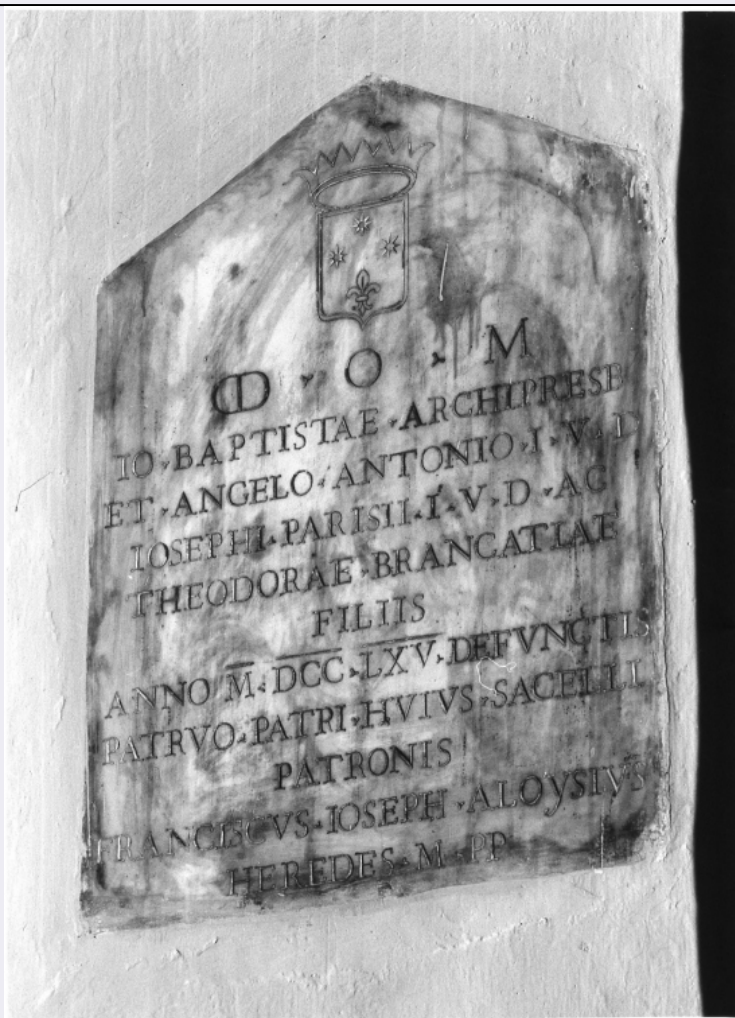 D · O · M
IO · BAPTISTAE · ARCHIPRESB
ET · ANGELO · ANTONIO · I · V · D
IOSEPHI · PARISII · I · V · D · AC
THEODORAE · BRANCATIAE
FILIIS
ANNO M · DCC · LXV · DEFVNCTIS
PATRVO · PATRI · HVIVS · SACELLI
PATRONIS
FRANCISCVS · IOSEPH · ALOYSIVS
HEREDES · M · PP